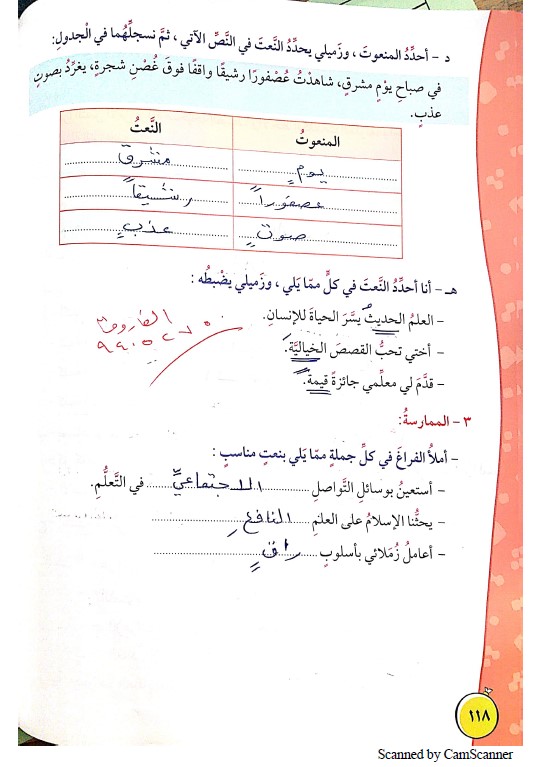 د - أحدِّدُ المنعوتَ ، وزَميلي يحدِّدُ النَّعتَ في النَّصِّ الآتي ، ثمَّ نسجلِّهُما في الْجدولِ:
في صباحِ يوْمٍ مشرقٍ، شاهدْتُ عُصْفورًا رشيقًا واقفًا فوقَ غُصْنِ شجرةٍ، يغرِّدُ بصوتٍ
عذبٍ.
المنعوتُ النَّعتُ
يومٍ مشرقٍ
عصفوراً رشيقاً
صوتٍ عذبٍ
هـ - أنا أحدِّدُ النَّعتَ في كلٍّ ممّا يَلي ، وزَميلي يضْبطُه :
- العلمُ الحديثُ يسَّرَ الحياةَ للإنسانِ.
- أختي تحبُّ القصصَ الخياليَّةَ.
- قدَّمَ لي معلِّمي جائزةً قيمةً.
الفاروق
٩٤٠٥٢٧٥٠
٣ - الممارسةُ:
- أملأُ الفراغَ في كلِّ جملةٍ ممّا يَلي بنعتٍ مناسبٍ :
- أستعينُ بوسائلِ التَّواصلِ الاجتماعيِّ في التَّعلُّمِ.
- يحثُّنا الإسلامُ على العلمِ النافعِ
- أعاملُ زُملائي بأسلوبٍ راقٍ
١١٨
Scanned by CamScanner